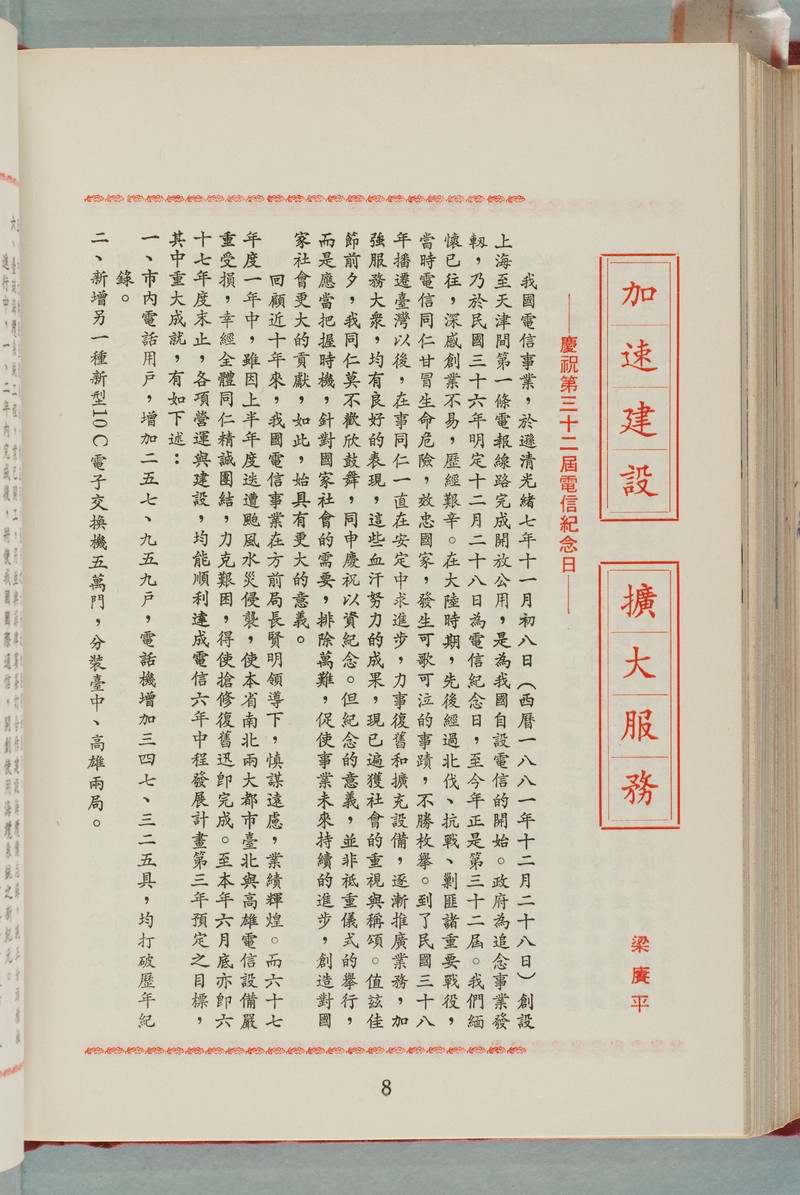 加速建設
擴大服務
梁賡平
——慶祝第三十二屆電信紀念日——
我國電信事業，於遜清光緒七年十一月初八日（西曆一八八一年十二月二十八日）創設
上海至天津間第一條電報線路完成開放公用，是為我國自設電信的開始。政府為追念事業發
軔，乃於民國三十六年明定十二月二十八日為電信紀念日，至今年正是第三十二屆。我們緬
懷已往，深感創業不易，歷經艱辛。在大陸時期，先後經過北伐、抗戰、剿匪諸重要戰役，
當時電信同仁甘冒生命危險，效忠國家，發生可歌可泣的事蹟，不勝枚舉。到了民國三十八
年播遷臺灣以後，在事同仁一直在安定中求進步，力事復舊和擴充設備，逐漸推廣業務，加
強服務大衆，均有良好的表現，這些血汗努力的成果，現已遍獲社會的重視與稱頌。值茲佳
節前夕，我同仁莫不歡欣鼓舞，同申慶祝以資紀念。但紀念的意義，並非祗重儀式的舉行，
而是應當把握時機，針對國家社會的需要，排除萬難，促使事業未來持續的進步，創造對國
家社會更大的貢獻，如此，始具有更大的意義。
回顧近十年來，我國電信事業在方前局長賢明領導下，慎謀遠慮，業績輝煌。而六十七
年度一年中，雖因上半年度迭遭颱風水災侵襲，使本省南北兩大都市臺北與高雄電信設備嚴
重受損，幸經全體同仁精誠團結，力克艱困，得使搶修復舊迅卽完成。至本年六月底亦卽六
十七年度末止，各項營運與建設，均能順利達成電信六年中程發展計畫第三年預定之目標，
其中重大成就，有如下述：
一、市內電話用戶，增加二五七、九五九戶，電話機增加三四七、三二五具，均打破歷年紀
錄。
二、新增另一種新型10C電子交換機五萬門，分裝臺中、高雄兩局。
8